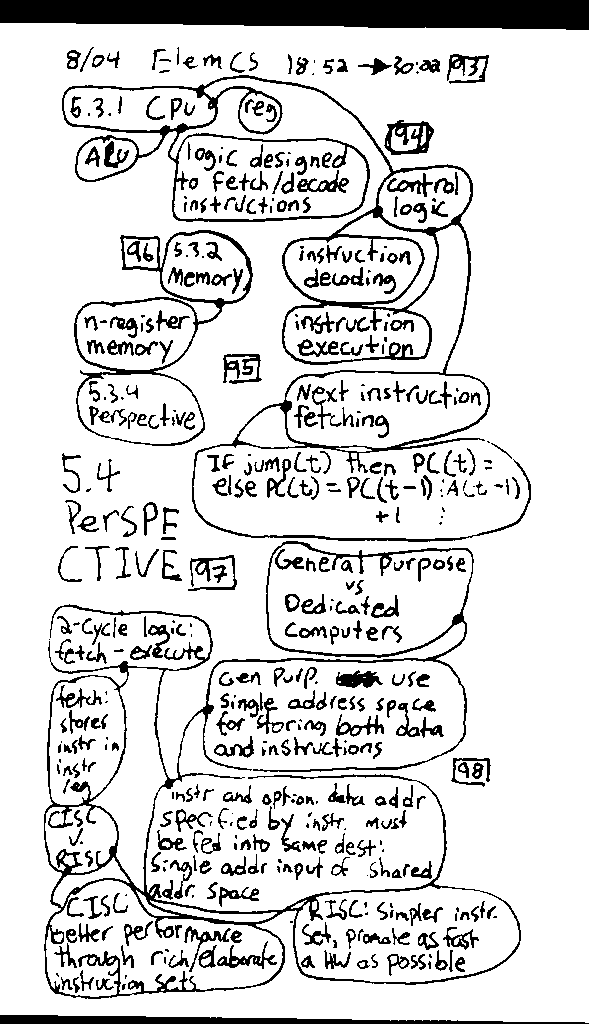 8/04 ElemCS 18:52 → 30:22 93
5.3.1 CPU
reg
ALU
logic designed
to fetch/decode
instructions
94
control
logic
instruction
decoding
instruction
execution
96
5.3.2
Memory
n-register
memory
5.3.4
Perspective
95
Next instruction
fetching
IF jump(t) then PC(t) =
else PC(t) = PC(t-1) : A(t-1)
+1 :
5.4
PERSPE
CTIVE 97
General Purpose
vs
Dedicated
computers
2-cycle logic:
fetch-execute
Gen Purp. use
single address space
for storing both data
and instructions
fetch:
stores
instr in
instr
reg
98
instr and option. data addr
specified by instr. must
be fed into same dest:
single addr input of shared
addr. space
CISC
v.
RISC
CISC
better performance
through rich/elaborate
instruction sets
RISC: Simpler instr.
set, promote as fast
a HW as possible